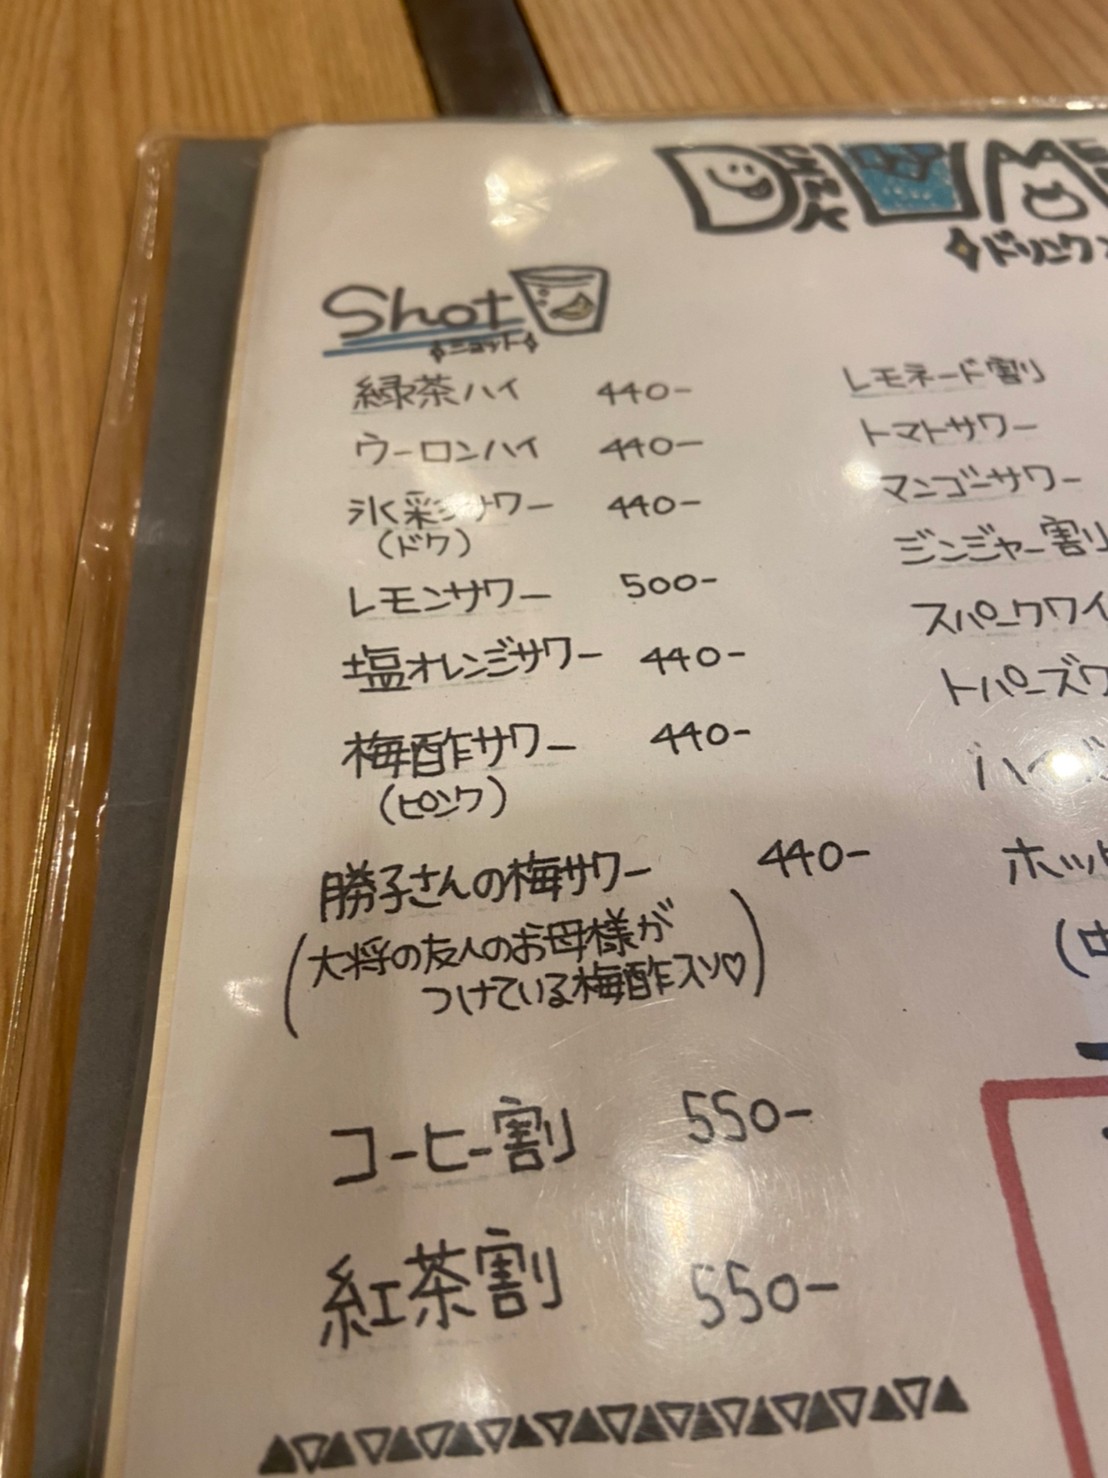 ◆ドリンク
Shot
ショット
緑茶ハイ 440-
ウーロンハイ 440-
氷彩サワー 440-
(ドク)
レモンサワー 500-
塩オレンジサワー 440-
梅酢サワー 440-
(ピンク)
勝子さんの梅サワー 440-
(大将の友人のお母様が
つけている梅酢スソ♡)
コーヒー割 550-
紅茶割 550-
レモネード割り
トマトサワー
マンゴーサワー
ジンジャー割り
スパークワイ
トパーズワ
ハイ
ホッ
(中